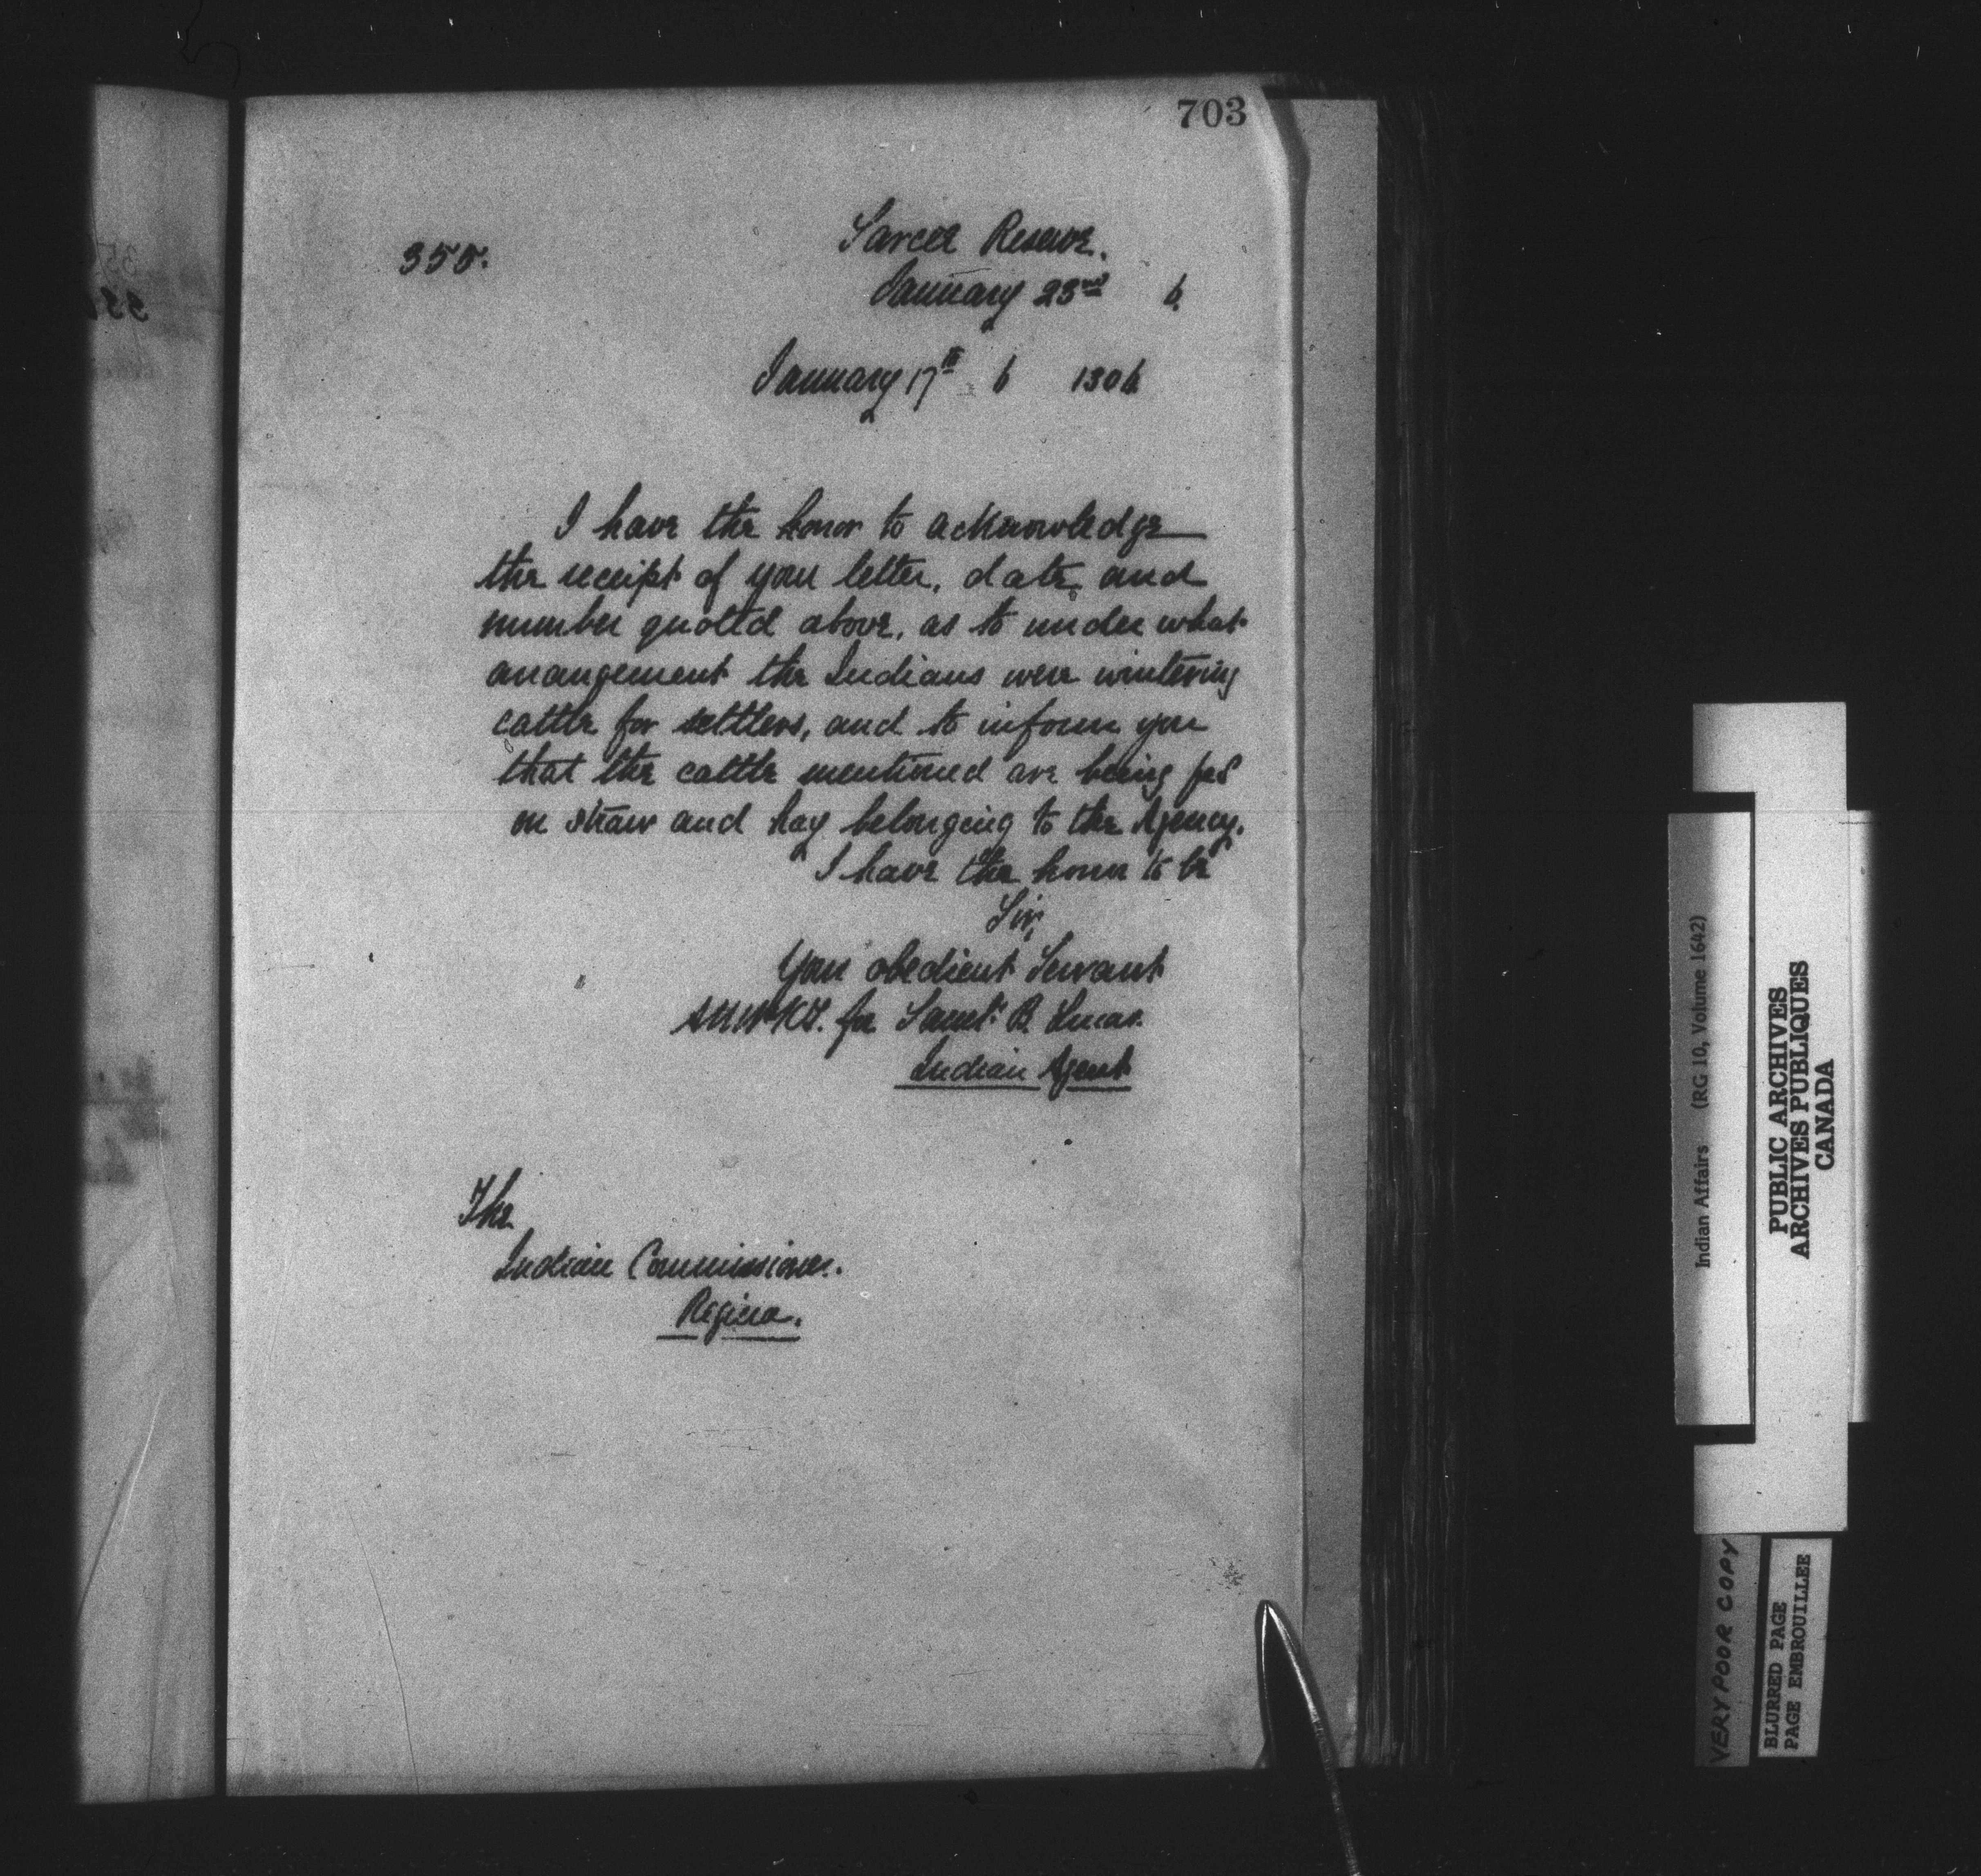 703
355.
Sarcee Reserve.
January 23rd 6.
January 17th 6 1306
I have the honor to acknowledge
the receipt of your letter, date, and
number quoted above, as to under what
arrangement the Indians were wintering
cattle for settlers, and to inform you
that the cattle mentioned are being fed
on straw and hay belonging to the Agency.
I have the honor to be
Sir,
Your obedient Servant
for Saml. B. Lucas.
Indian Agent
The
Indian Commissioner.
Regina.
Indian Affairs (RG 10, Volume 1642)
PUBLIC ARCHIVES
ARCHIVES PUBLIQUES
CANADA
VERY POOR COPY
BLURRED PAGE
PAGE EMBROUILLEE